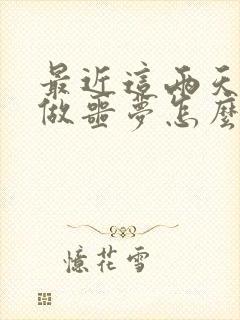 最近這兩天
做噩夢怎麼
憶花雪